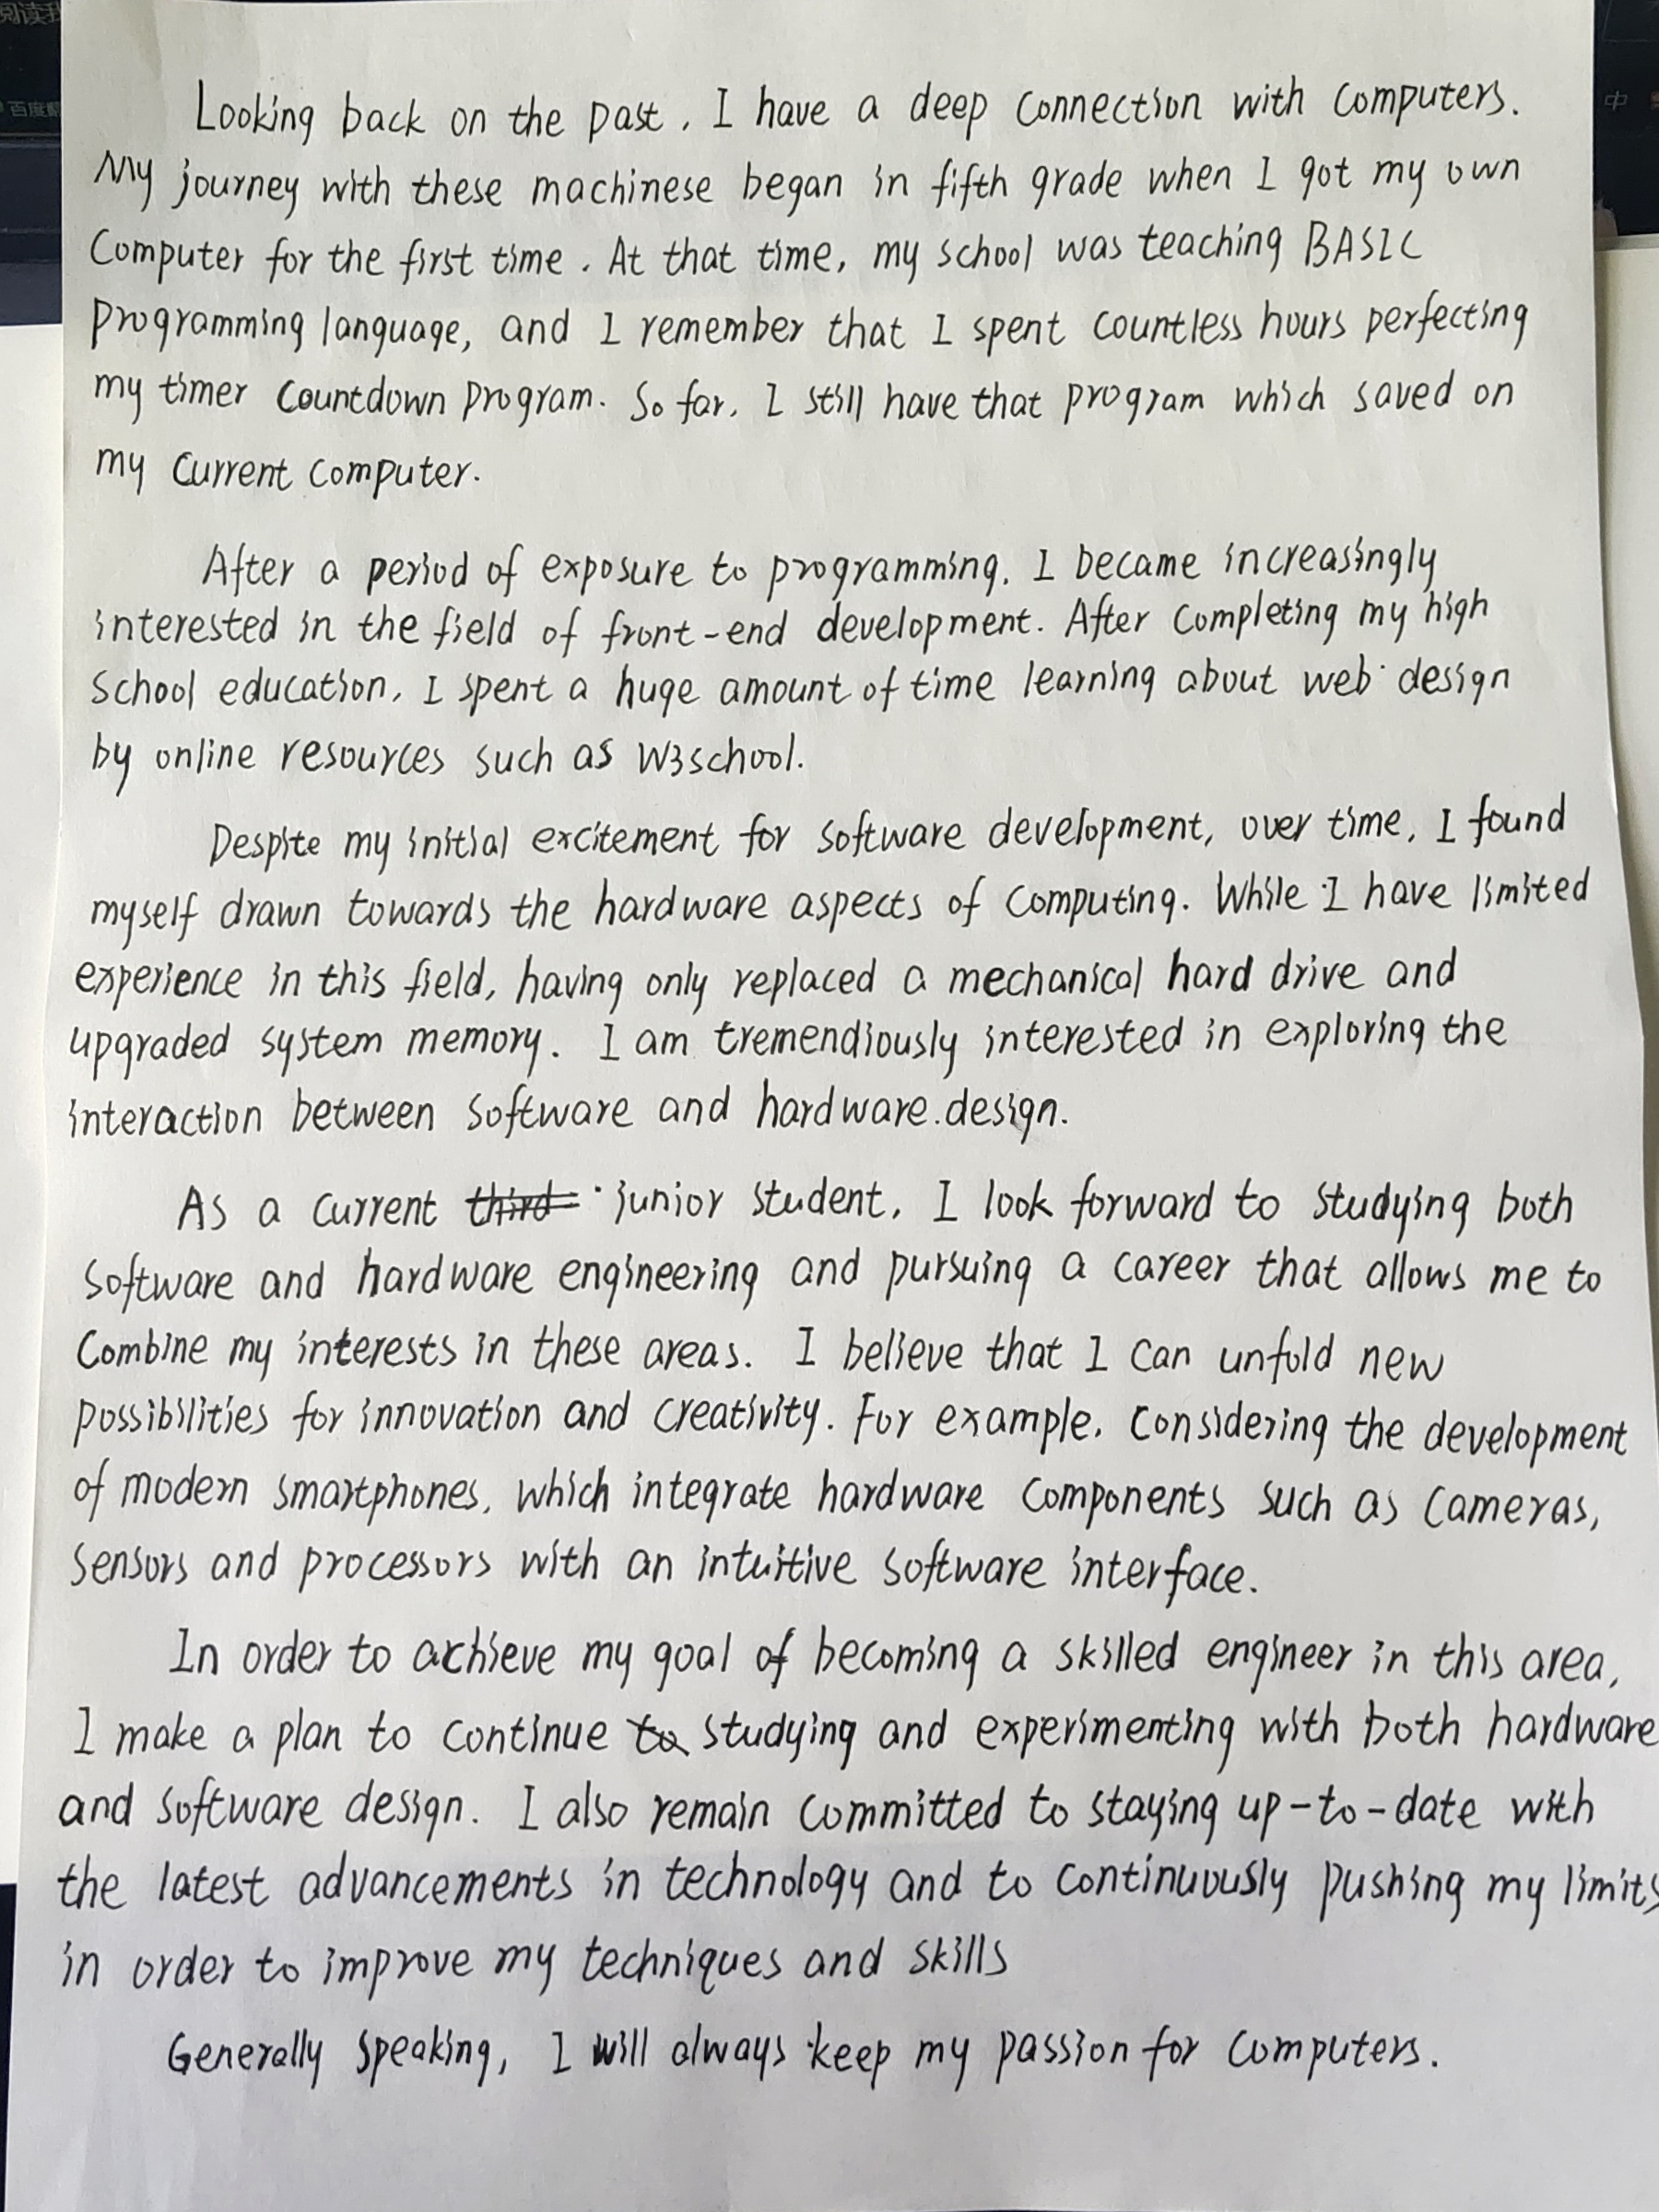 阅读
百度
中
Looking back on the past, I have a deep connection with computers.
My journey with these machinese began in fifth grade when I got my own
Computer for the first time. At that time, my school was teaching BASIC
programming language, and I remember that I spent countless hours perfecting
my timer countdown program. So far, I still have that program which saved on
my current computer.
After a period of exposure to programming, I became increasingly
interested in the field of front-end development. After completing my high
school education, I spent a huge amount of time learning about web design
by online resources such as W3school.
Despite my initial excitement for software development, over time, I found
myself drawn towards the hardware aspects of computing. While I have limited
experience in this field, having only replaced a mechanical hard drive and
upgraded system memory. I am tremendiously interested in exploring the
interaction between software and hardware design.
As a current third junior student, I look forward to studying both
software and hardware engineering and pursuing a career that allows me to
combine my interests in these areas. I believe that I can unfold new
possibilities for innovation and creativity. For example, considering the development
of modern smartphones, which integrate hardware components such as cameras,
sensors and processors with an intuitive software interface.
In order to achieve my goal of becoming a skilled engineer in this area,
I make a plan to continue to studying and experimenting with both hardware
and software design. I also remain committed to staying up-to-date with
the latest advancements in technology and to continuously pushing my limits
in order to improve my techniques and skills
Generally speaking, I will always keep my passion for computers.